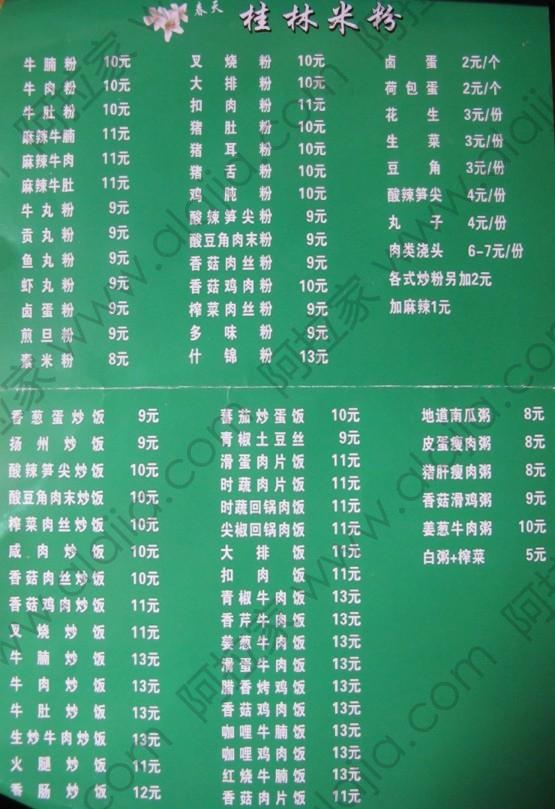 春天 桂林米粉
牛腩粉 10元
牛肉粉 10元
牛肚粉 10元
麻辣牛腩 11元
麻辣牛肉 11元
麻辣牛肚 11元
牛丸粉 9元
贡丸粉 9元
鱼丸粉 9元
虾丸粉 9元
卤蛋粉 9元
煎旦粉 9元
素米粉 8元
叉烧粉 10元
大排粉 10元
扣肉粉 11元
猪肚粉 10元
猪耳粉 10元
猪舌粉 10元
鸡肫粉 10元
酸辣笋尖粉 9元
酸豆角肉末粉 9元
香菇肉丝粉 9元
香菇鸡肉粉 10元
榨菜肉丝粉 9元
多味粉 9元
什锦粉 13元
卤蛋 2元/个
荷包蛋 2元/个
花生 3元/份
生菜 3元/份
豆角 3元/份
酸辣笋尖 4元/份
丸子 4元/份
肉类浇头 6-7元/份
各式炒粉另加2元
加麻辣1元
香葱蛋炒饭 9元
扬州炒饭 9元
酸辣笋尖炒饭 10元
酸豆角肉末炒饭 10元
榨菜肉丝炒饭 10元
咸肉炒饭 10元
香菇肉丝炒饭 10元
香菇鸡肉炒饭 11元
叉烧炒饭 11元
牛腩炒饭 13元
牛肉炒饭 13元
牛肚炒饭 13元
生炒牛肉炒饭 13元
火腿炒饭 11元
香肠炒饭 12元
蕃茄炒蛋饭 10元
青椒土豆丝 9元
滑蛋肉片饭 11元
时蔬肉片饭 11元
时蔬回锅肉饭 11元
尖椒回锅肉饭 11元
大排饭 11元
扣肉饭 11元
青椒牛肉饭 13元
香芹牛肉饭 13元
姜葱牛肉饭 13元
滑蛋牛肉饭 13元
腊香烤鸡饭 13元
香菇鸡肉饭 13元
咖喱牛腩饭 13元
咖喱鸡肉饭 13元
红烧牛腩饭 13元
香菇肉片饭 11元
地道南瓜粥 8元
皮蛋瘦肉粥 8元
猪肝瘦肉粥 8元
香菇滑鸡粥 9元
姜葱牛肉粥 10元
白粥+榨菜 5元
阿拉家 www.alajia.com